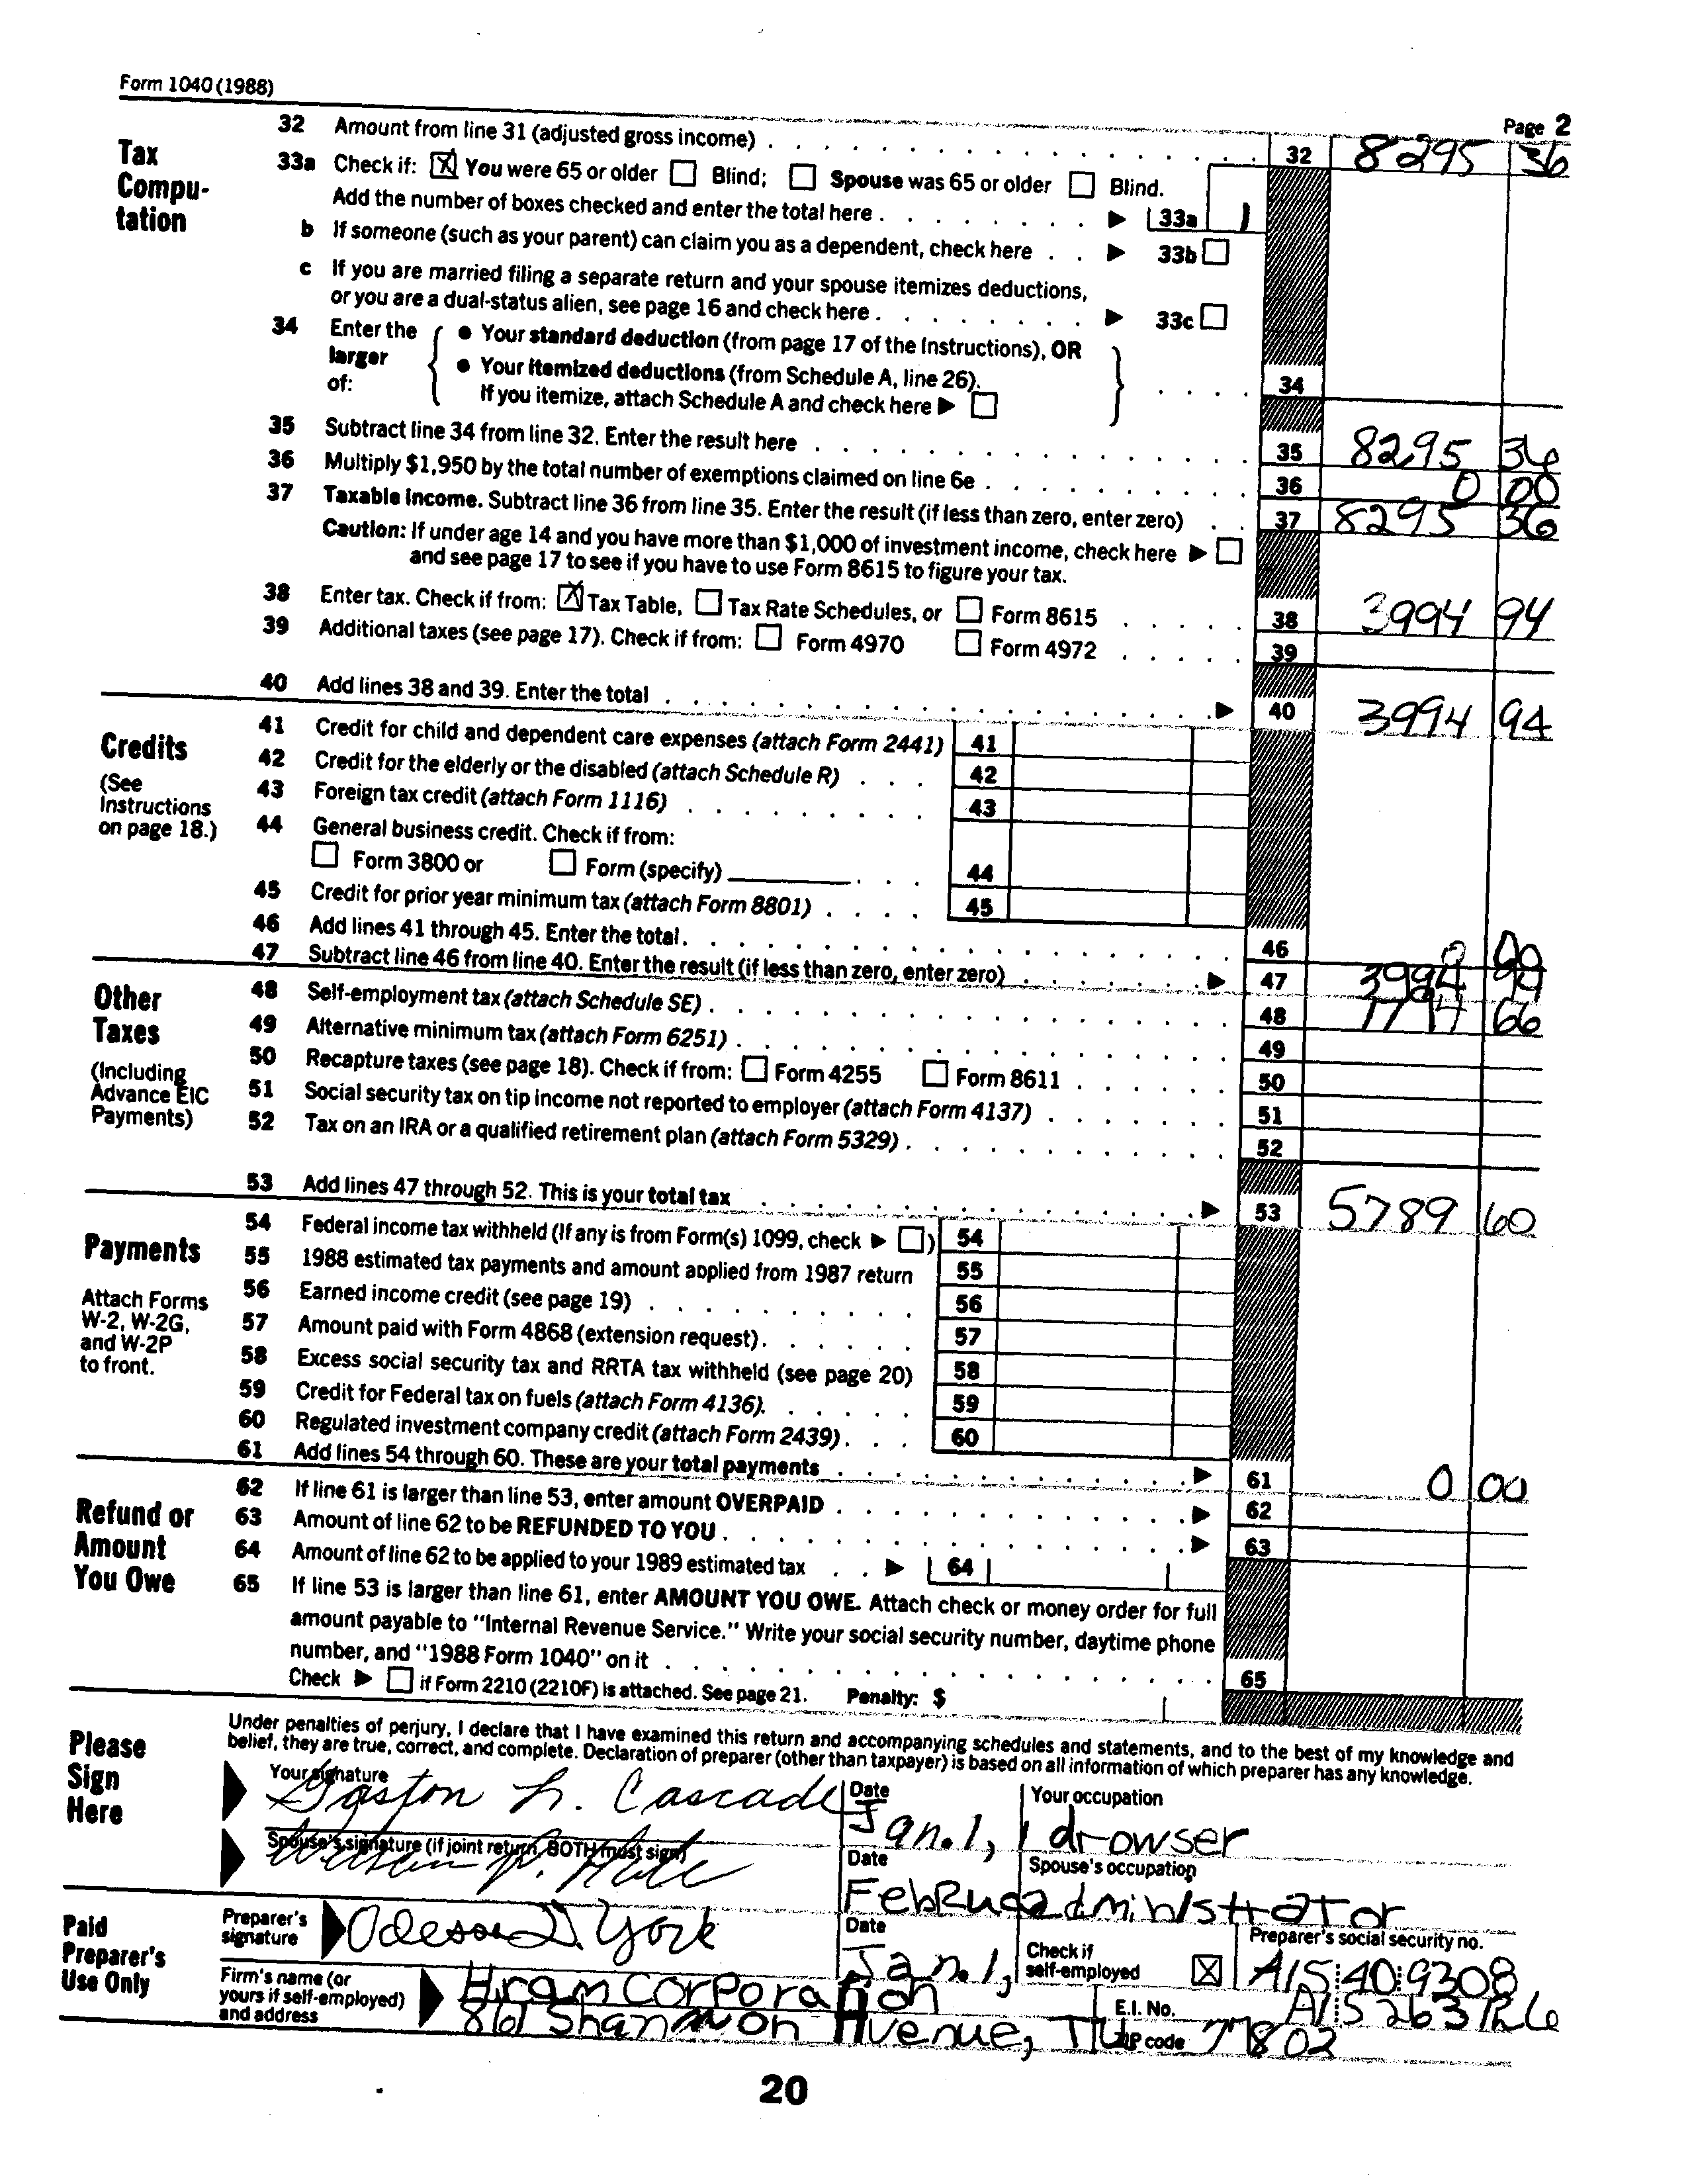 Form 1040 (1988)
Page 2
Tax Compu-tation
32 Amount from line 31 (adjusted gross income) 32 8295 36
33a Check if: [X] You were 65 or older Blind; Spouse was 65 or older Blind.
Add the number of boxes checked and enter the total here 33a 1
b If someone (such as your parent) can claim you as a dependent, check here 33b
c If you are married filing a separate return and your spouse itemizes deductions,
or you are a dual-status alien, see page 16 and check here 33c
34 Enter the larger of: • Your standard deduction (from page 17 of the Instructions), OR
• Your itemized deductions (from Schedule A, line 26).
If you itemize, attach Schedule A and check here 34
35 Subtract line 34 from line 32. Enter the result here 35 8295 36
36 Multiply $1,950 by the total number of exemptions claimed on line 6e 36 0 00
37 Taxable income. Subtract line 36 from line 35. Enter the result (if less than zero, enter zero) 37 8295 36
Caution: If under age 14 and you have more than $1,000 of investment income, check here
and see page 17 to see if you have to use Form 8615 to figure your tax.
38 Enter tax. Check if from: [X] Tax Table, Tax Rate Schedules, or Form 8615 38 3994 94
39 Additional taxes (see page 17). Check if from: Form 4970 Form 4972 39
40 Add lines 38 and 39. Enter the total 40 3994 94
Credits
(See Instructions on page 18.)
41 Credit for child and dependent care expenses (attach Form 2441) 41
42 Credit for the elderly or the disabled (attach Schedule R) 42
43 Foreign tax credit (attach Form 1116) 43
44 General business credit. Check if from:
Form 3800 or Form (specify) 44
45 Credit for prior year minimum tax (attach Form 8801) 45
46 Add lines 41 through 45. Enter the total. 46 0 00
47 Subtract line 46 from line 40. Enter the result (if less than zero, enter zero) 47 3994 94
Other Taxes
(Including Advance EIC Payments)
48 Self-employment tax (attach Schedule SE) 48 1794 66
49 Alternative minimum tax (attach Form 6251) 49
50 Recapture taxes (see page 18). Check if from: Form 4255 Form 8611 50
51 Social security tax on tip income not reported to employer (attach Form 4137) 51
52 Tax on an IRA or a qualified retirement plan (attach Form 5329) 52
53 Add lines 47 through 52. This is your total tax 53 5789 60
Payments
Attach Forms W-2, W-2G, and W-2P to front.
54 Federal income tax withheld (If any is from Form(s) 1099, check ) 54
55 1988 estimated tax payments and amount applied from 1987 return 55
56 Earned income credit (see page 19) 56
57 Amount paid with Form 4868 (extension request) 57
58 Excess social security tax and RRTA tax withheld (see page 20) 58
59 Credit for Federal tax on fuels (attach Form 4136). 59
60 Regulated investment company credit (attach Form 2439) 60
61 Add lines 54 through 60. These are your total payments 61 0 00
Refund or Amount You Owe
62 If line 61 is larger than line 53, enter amount OVERPAID 62
63 Amount of line 62 to be REFUNDED TO YOU 63
64 Amount of line 62 to be applied to your 1989 estimated tax 64
65 If line 53 is larger than line 61, enter AMOUNT YOU OWE. Attach check or money order for full
amount payable to "Internal Revenue Service." Write your social security number, daytime phone
number, and "1988 Form 1040" on it 65
Check if Form 2210 (2210F) is attached. See page 21. Penalty: $
Please Sign Here
Under penalties of perjury, I declare that I have examined this return and accompanying schedules and statements, and to the best of my knowledge and
belief, they are true, correct, and complete. Declaration of preparer (other than taxpayer) is based on all information of which preparer has any knowledge.
Your signature Gaston L. Cascade Date Jan. 1, Your occupation drowser
Spouse's signature (if joint return, BOTH must sign) Date Februa Spouse's occupation administrator
Paid Preparer's Use Only
Preparer's signature Odessa D. York Date Jan. 1, Check if self-employed [X] Preparer's social security no. A15 40 9308
Firm's name (or yours if self-employed) and address Hram Corporation E.I. No.
861 Shannon Avenue, ZIP code 77802
20